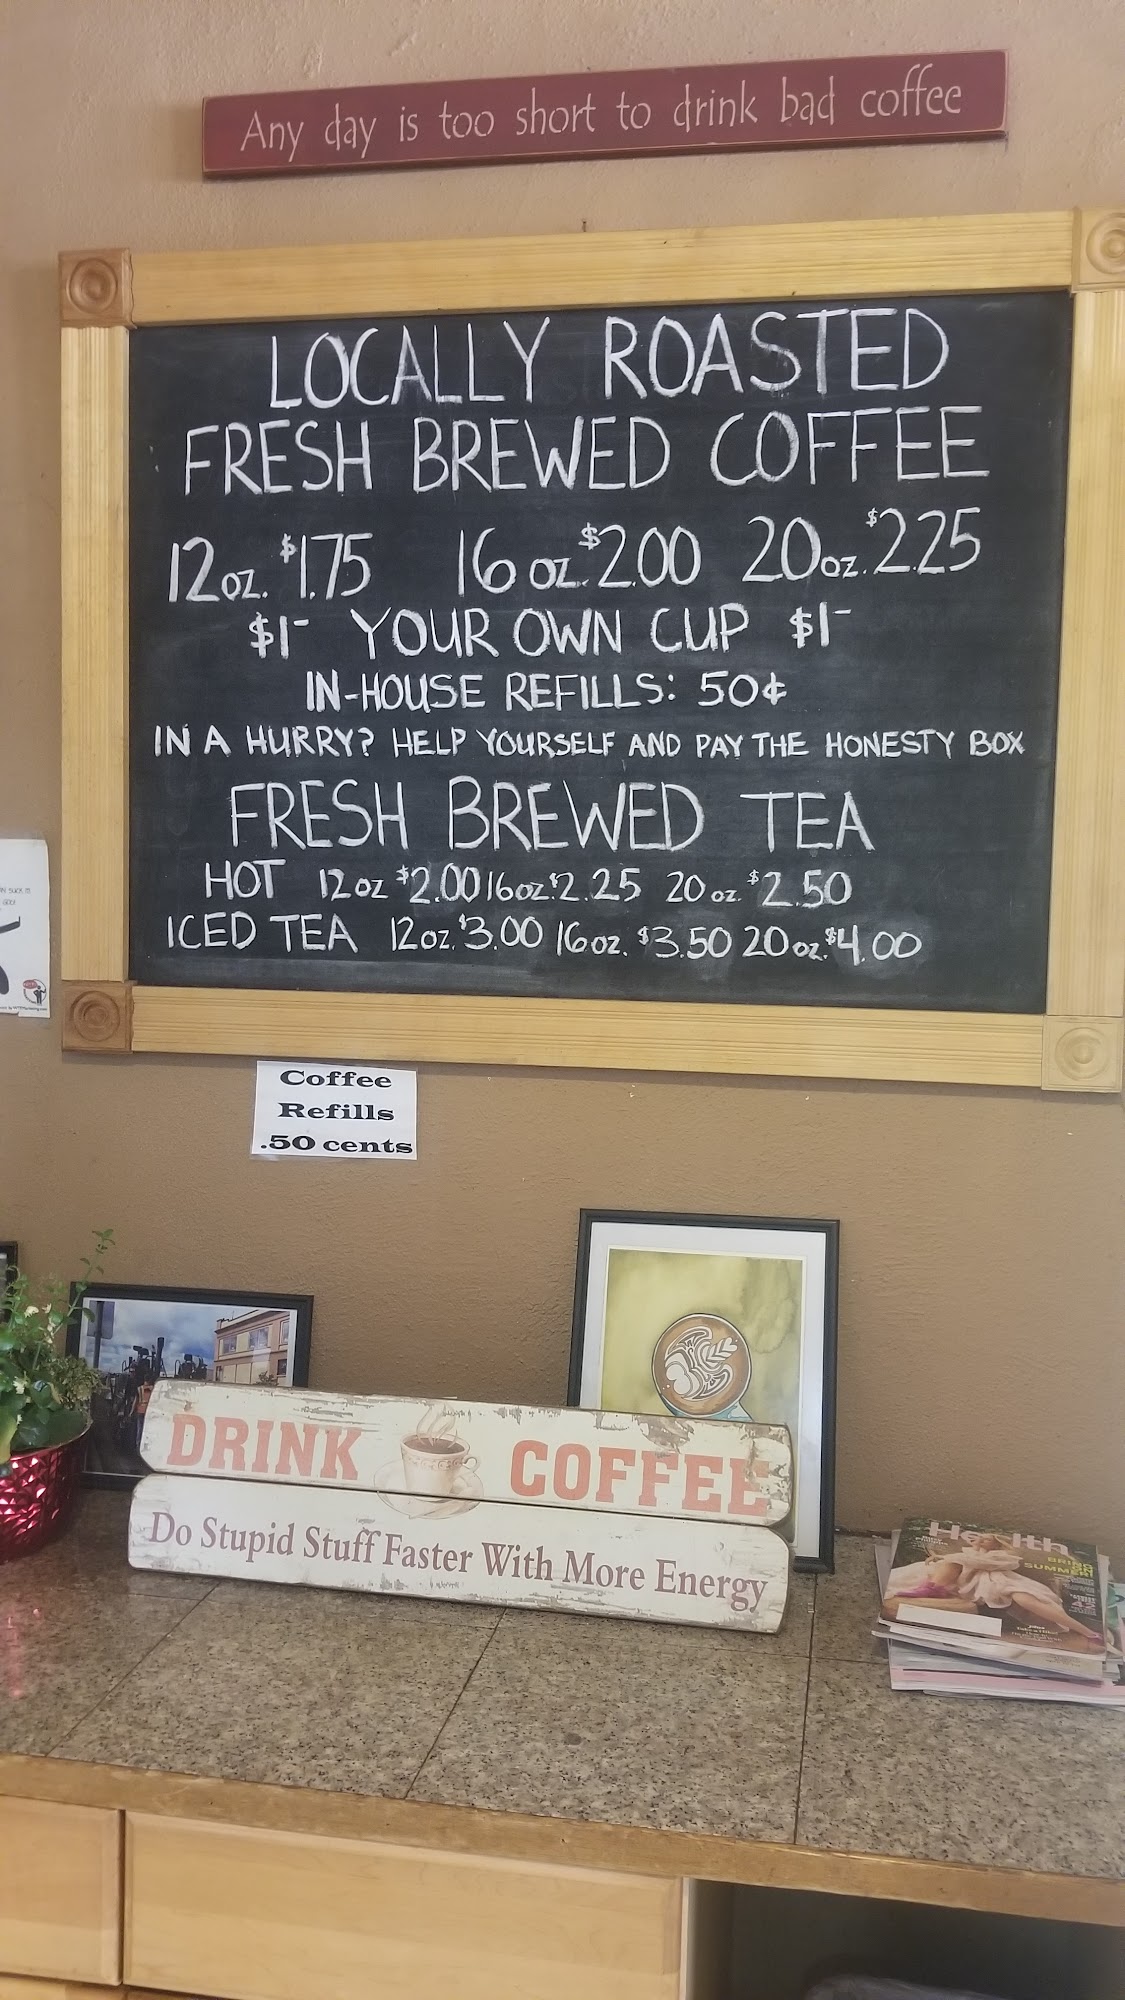 Any day is too short to drink bad coffee
LOCALLY ROASTED
FRESH BREWED COFFEE
12oz. $1.75 16 oz. $2.00 20oz. $2.25
$1- YOUR OWN CUP $1-
IN-HOUSE REFILLS: 50¢
IN A HURRY? HELP YOURSELF AND PAY THE HONESTY BOX
FRESH BREWED TEA
HOT 12oz $2.00 16oz. $2.25 20 oz. $2.50
ICED TEA 12oz. $3.00 16oz. $3.50 20oz. $4.00
Coffee
Refills
.50 cents
DRINK COFFEE
Do Stupid Stuff Faster With More Energy
Health
BRING
ON
SUMMER!
42